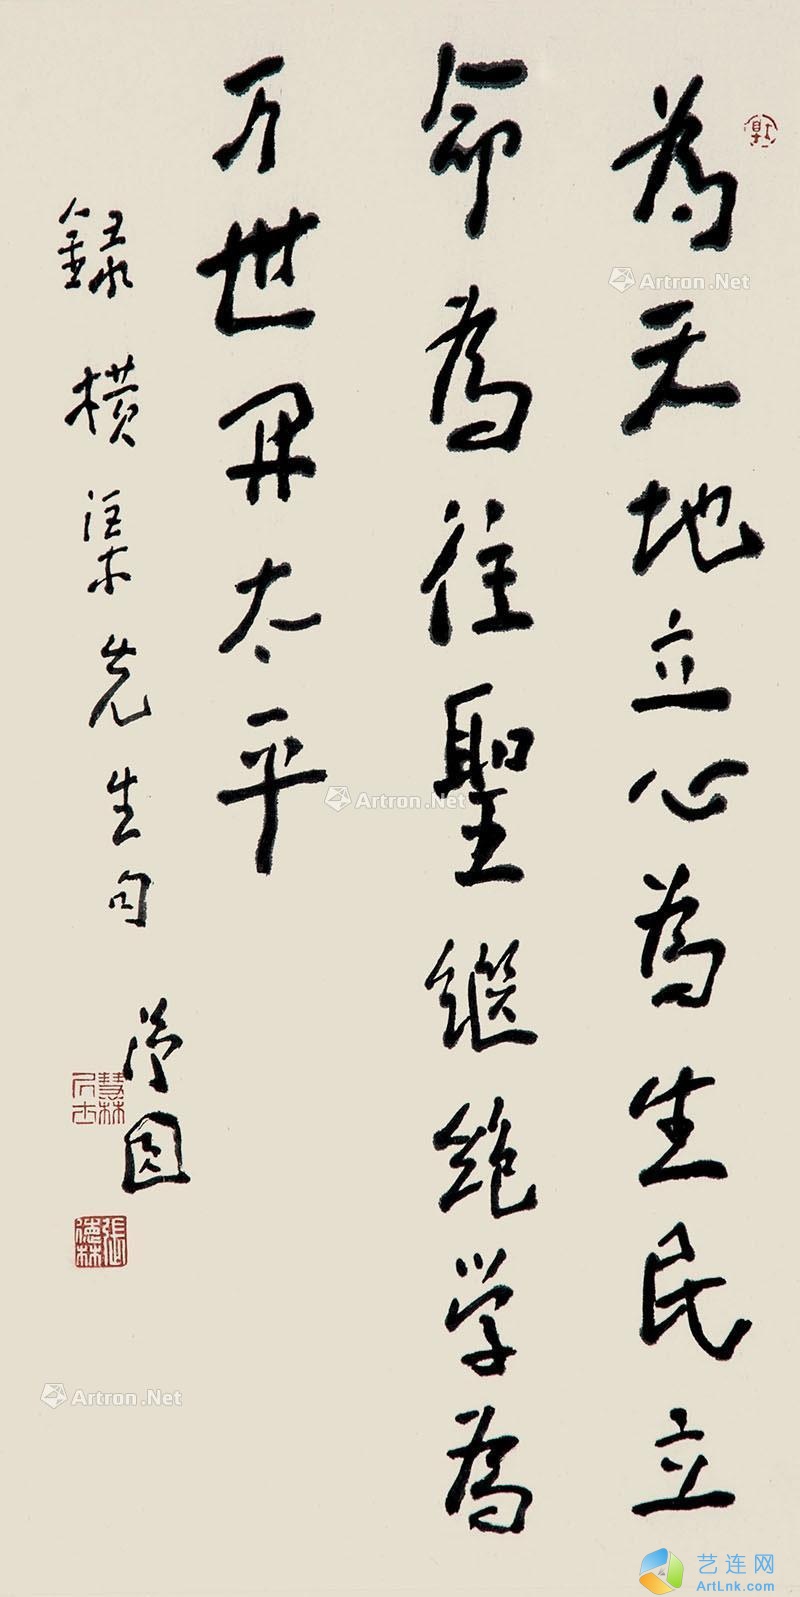 為天地立心為生民立
命為往聖继绝学為
万世开太平
録横渠先生句
張德林
慧林居士
Artron.Net
Artron.Net
Artron.Net
艺连网
ArtLnk.com